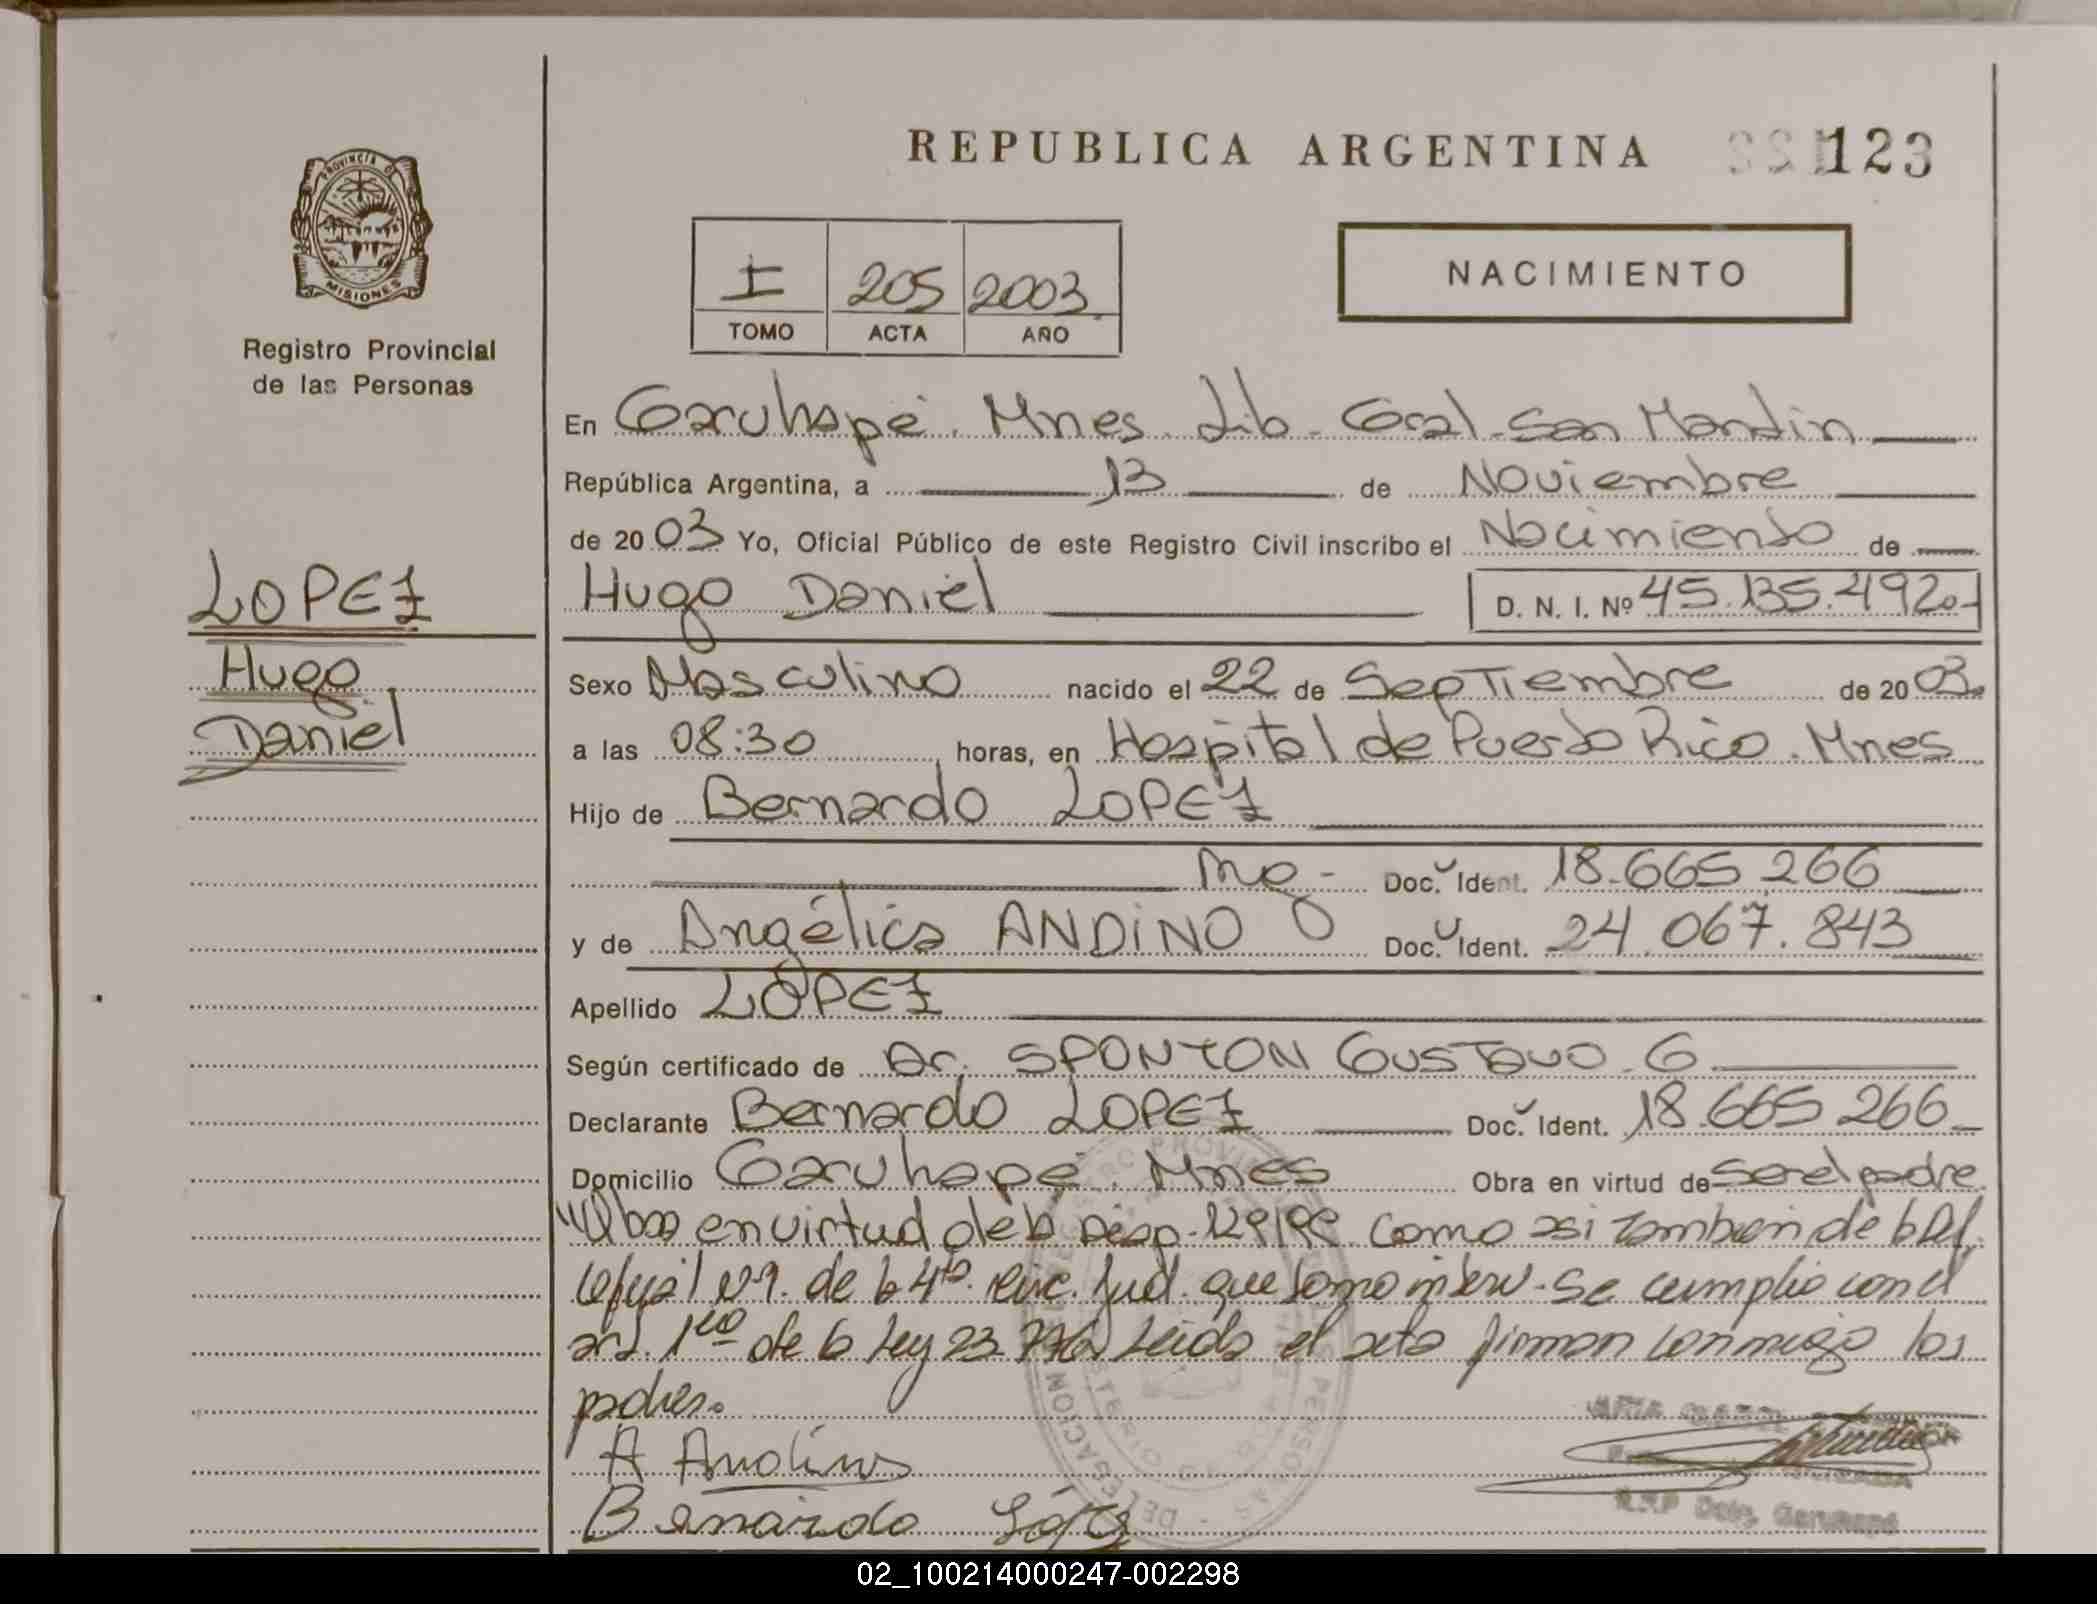 REPUBLICA ARGENTINA 123
PROVINCIA DE
MISIONES
Registro Provincial
de las Personas
I 205 2003
TOMO ACTA AÑO
NACIMIENTO
En Garuhapé. Mnes. Lib. Gral. San Martin
República Argentina, a 13 de Noviembre
de 2003 Yo, Oficial Público de este Registro Civil inscribo el Nacimiento de
LOPEZ
Hugo
Daniel
Hugo Daniel D. N. I. Nº 45.135.492.-
Sexo Masculino nacido el 22 de Septiembre de 2003.
a las 08:30 horas, en Hospital de Puerto Rico. Mnes
Hijo de Bernardo LOPEZ
Doc. Ident. 18.665.266
y de Angélica ANDiNO Doc. Ident. 24.067.843
Apellido LOPEZ
Según certificado de Dr. SPONTON GUSTAVO. G
Declarante Bernardo LOPEZ Doc. Ident. 18.665.266
Domicilio Garuhapé. Mnes Obra en virtud de ser el padre.
en virtud de la Disp. como asi tambien de la
de la 4ta. Circ. Jud. que tomo interv. Se cumplio con el
art. 1ro de la Ley 23. Leida el acta firman conmigo los
padres.
A Andino
Bernardo López
R.P.P Deleg. Garuhapé
02_100214000247-002298